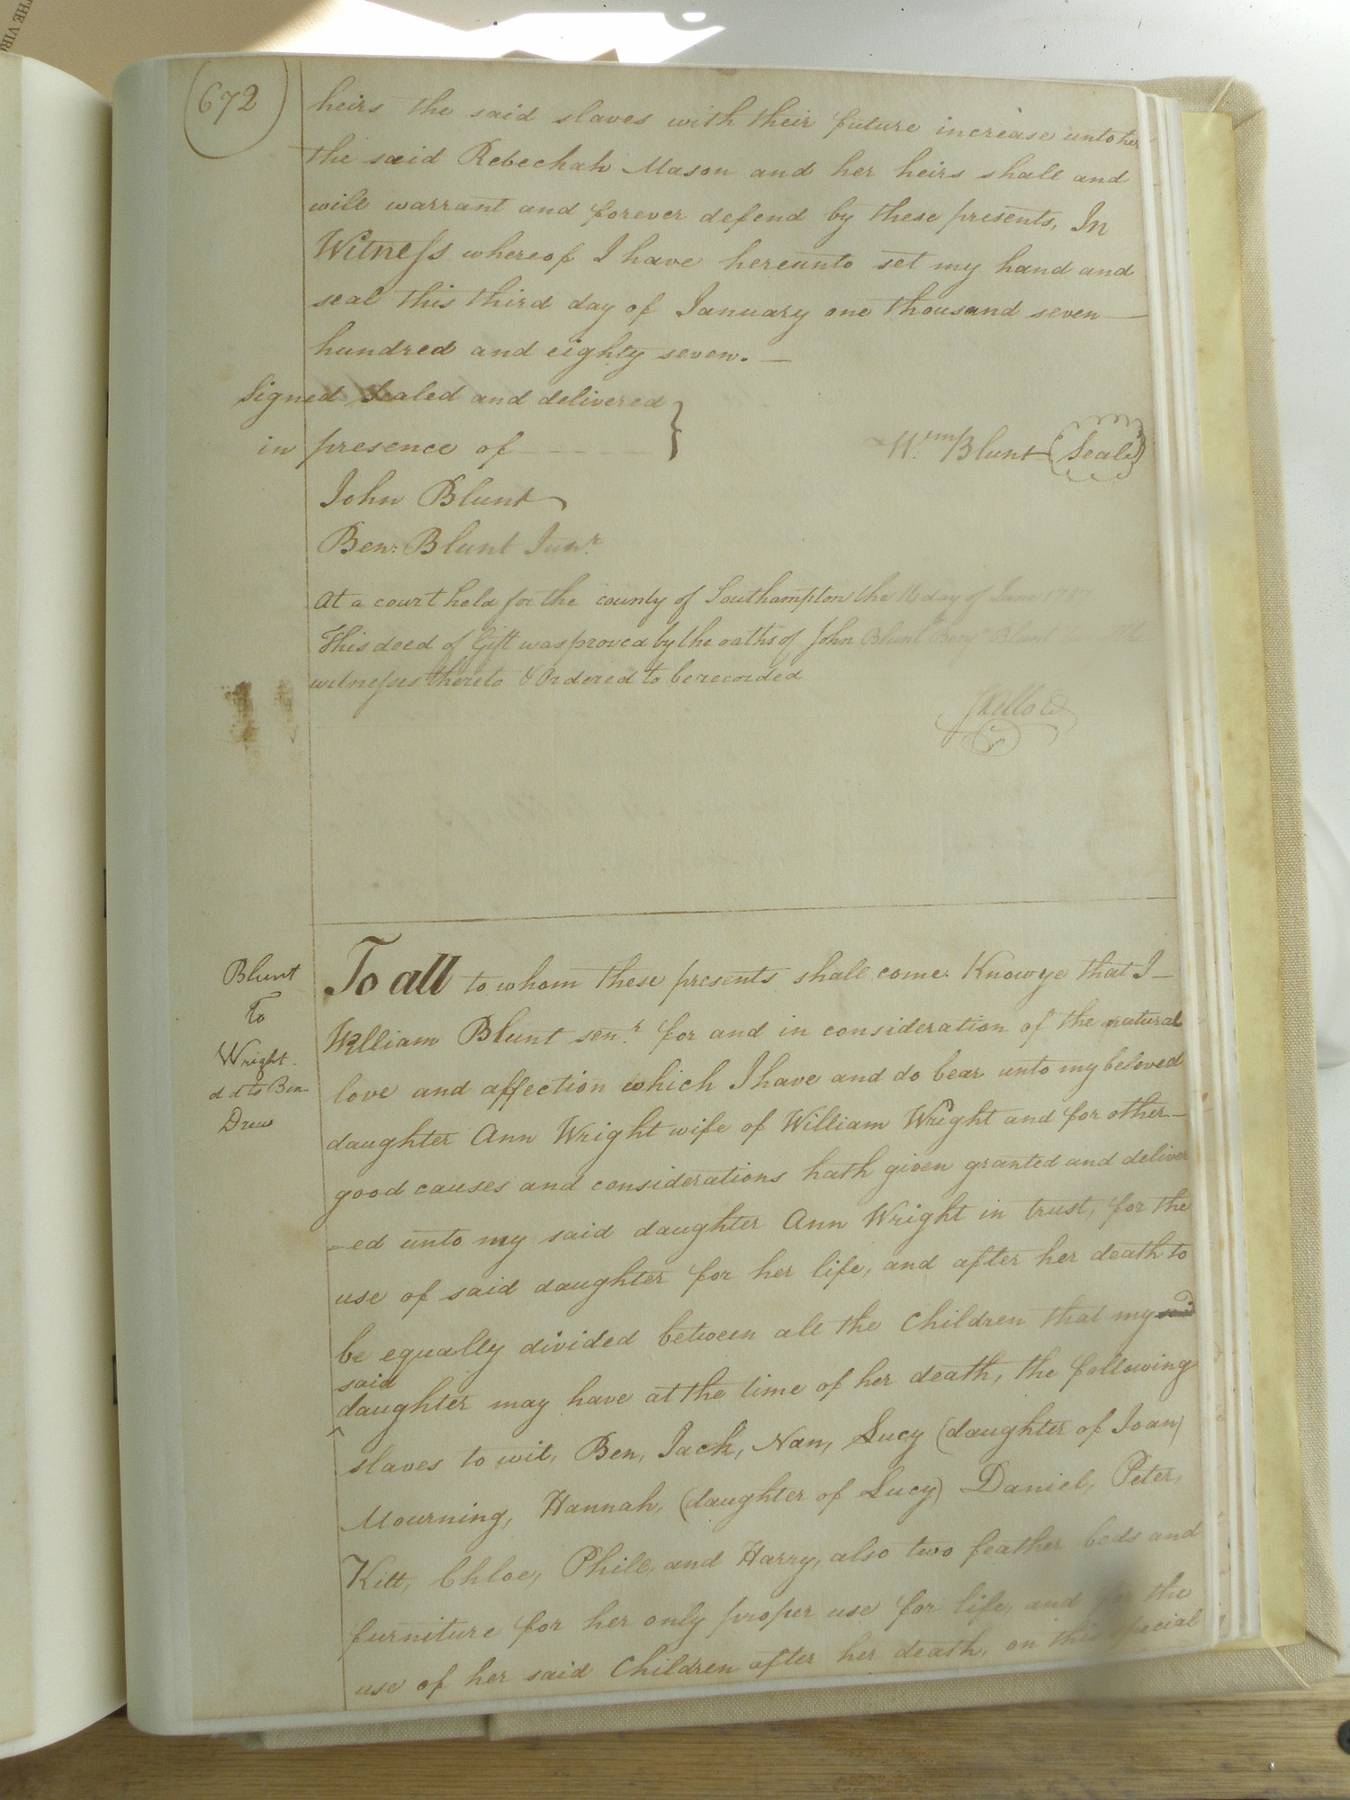 THE VIR
672
heirs the said slaves with their future increase unto her
the said Rebeckah Mason and her heirs shall and
will warrant and forever defend by these presents, In
Witness whereof I have hereunto set my hand and
seal this third day of January one thousand seven
hundred and eighty seven. —
Signed Sealed and delivered
in presence of
Wm. Blunt (Seal)
John Blunt
Ben: Blunt Junr.
At a court held for the county of Southampton the day of June
This deed of Gift was proved by the oaths of John Blunt Benjn Blunt
witnesses thereto & Ordered to be recorded
Blunt
To
Wright
d d to Ben
Drew
To all to whom these presents shall come Know ye that I —
William Blunt senr. for and in consideration of the natural
love and affection which I have and do bear unto my beloved
daughter Ann Wright wife of William Wright and for other —
good causes and considerations hath given granted and deliver
-ed unto my said daughter Ann Wright in trust, for the
use of said daughter for her life, and after her death to
be equally divided between all the Children that my
said
daughter may have at the time of her death, the following
slaves to wit, Ben, Jack, Nan, Lucy (daughter of Joan)
Mourning, Hannah, (daughter of Lucy) Daniel, Peter,
Kitt, Chloe, Phill, and Harry, also two feather beds and
furniture for her only proper use for life, and for the
use of her said Children after her death, on this special